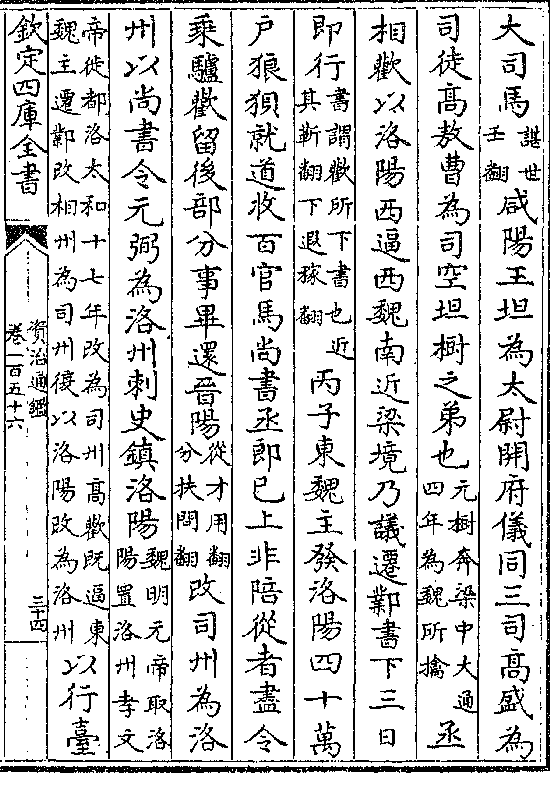 大司馬諶世壬翻咸陽王坦為太尉開府儀同三司髙盛為
司徒髙敖曹為司空坦樹之弟也元樹奔梁中大通四年為魏所擒丞
相歡以洛陽西逼西魏南近梁境乃議遷鄴書下三日
即行書謂歡所下書也近其靳翻下遐稼翻丙子東魏主發洛陽四十萬
户狼狽就道收百官馬尚書丞郎已上非陪從者盡令
乘驢歡留後部分事畢還晉陽從才用翻分扶問翻改司州為洛
州以尚書令元弼為洛州刺史鎮洛陽魏明元帝取洛陽置洛州孝文
帝徙都洛太和十七年改為司州髙歡既逼東魏主遷鄴改相州為司州復以洛陽改為洛州以行臺
欽定四庫全書
資治通鑑
卷一百五十六
三十四